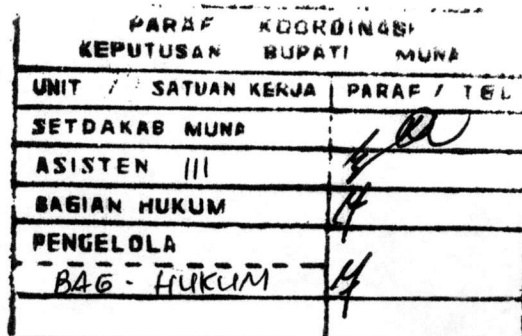 PARAF KOORDINASI
KEPUTUSAN BUPATI MUNA
UNIT / SATUAN KERJA | PARAF / TGL
SETDAKAB MUNA
ASISTEN III
BAGIAN HUKUM
PENGELOLA
BAG - HUKUM